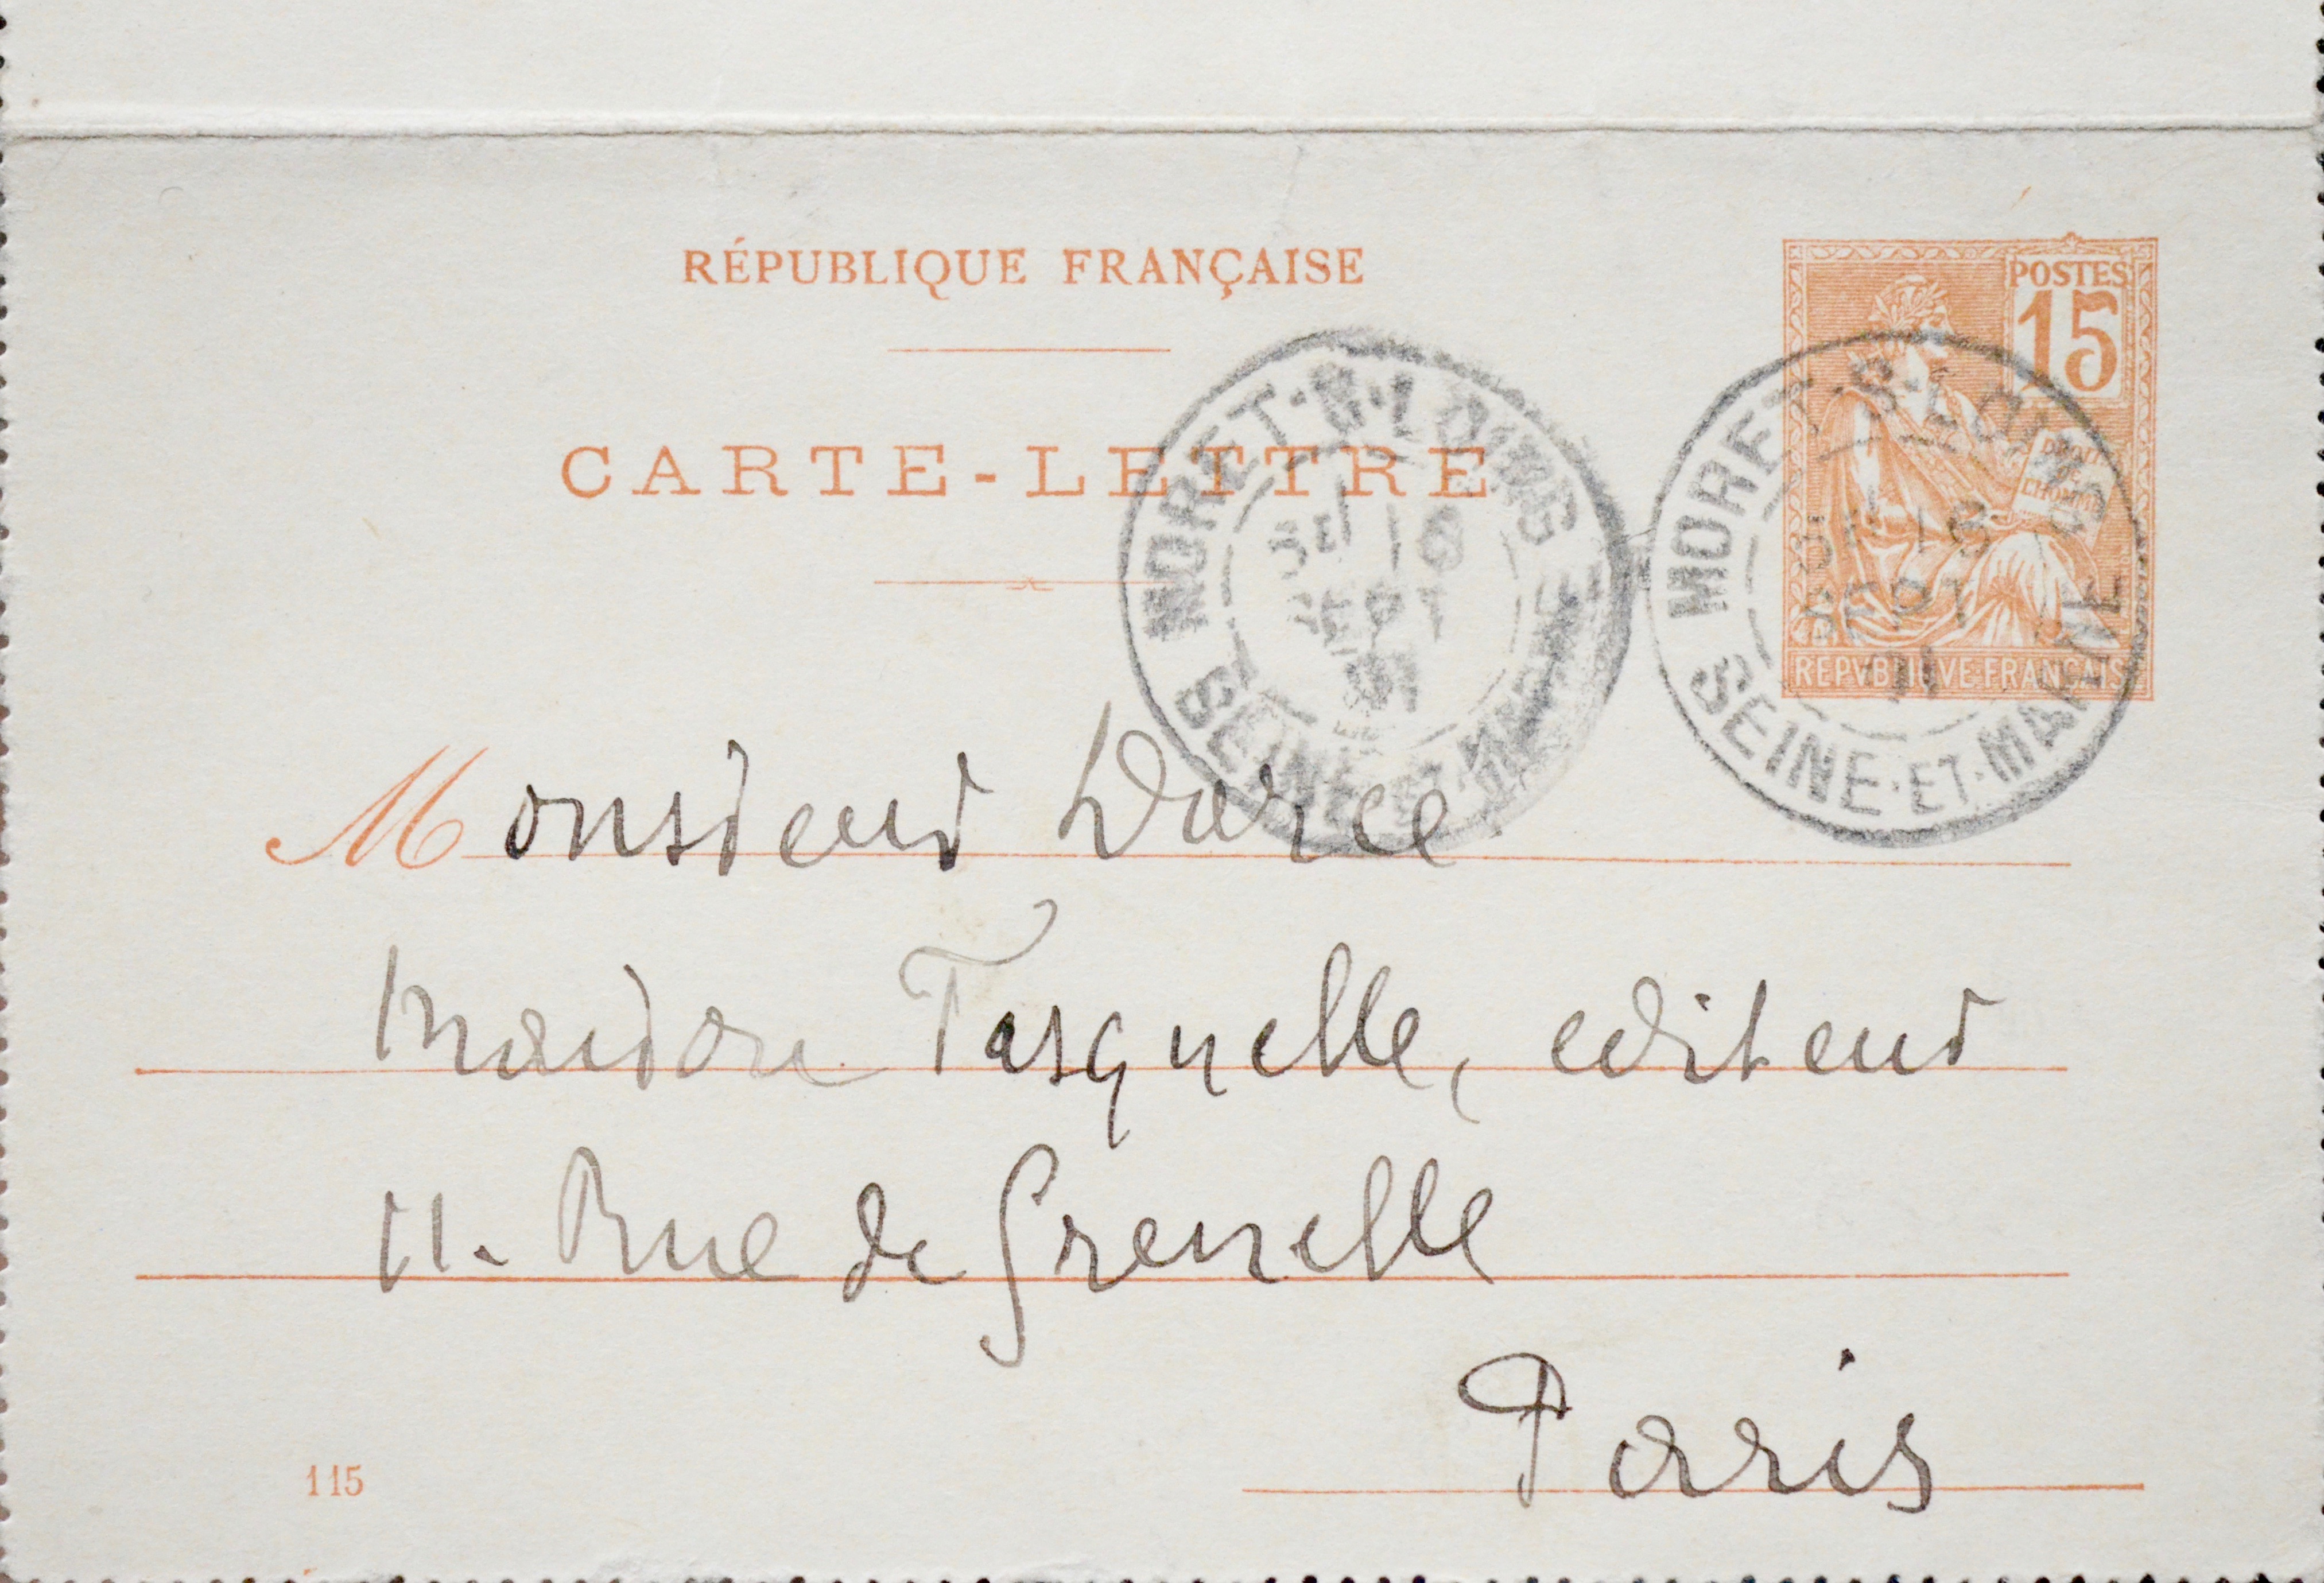 RÉPUBLIQUE FRANÇAISE
POSTES
15
DROITS
DE
L'HOMME
REPVBLIQVE·FRANÇAISE
CARTE-LETTRE
MORET-S-LOING
SEINE-ET-MARNE
MORET-S-LOING
SEPT
01
SEINE-ET-MARNE
Monsieur
Maison Fasquelle, editeur
11. Rue de Grenelle
Paris
115